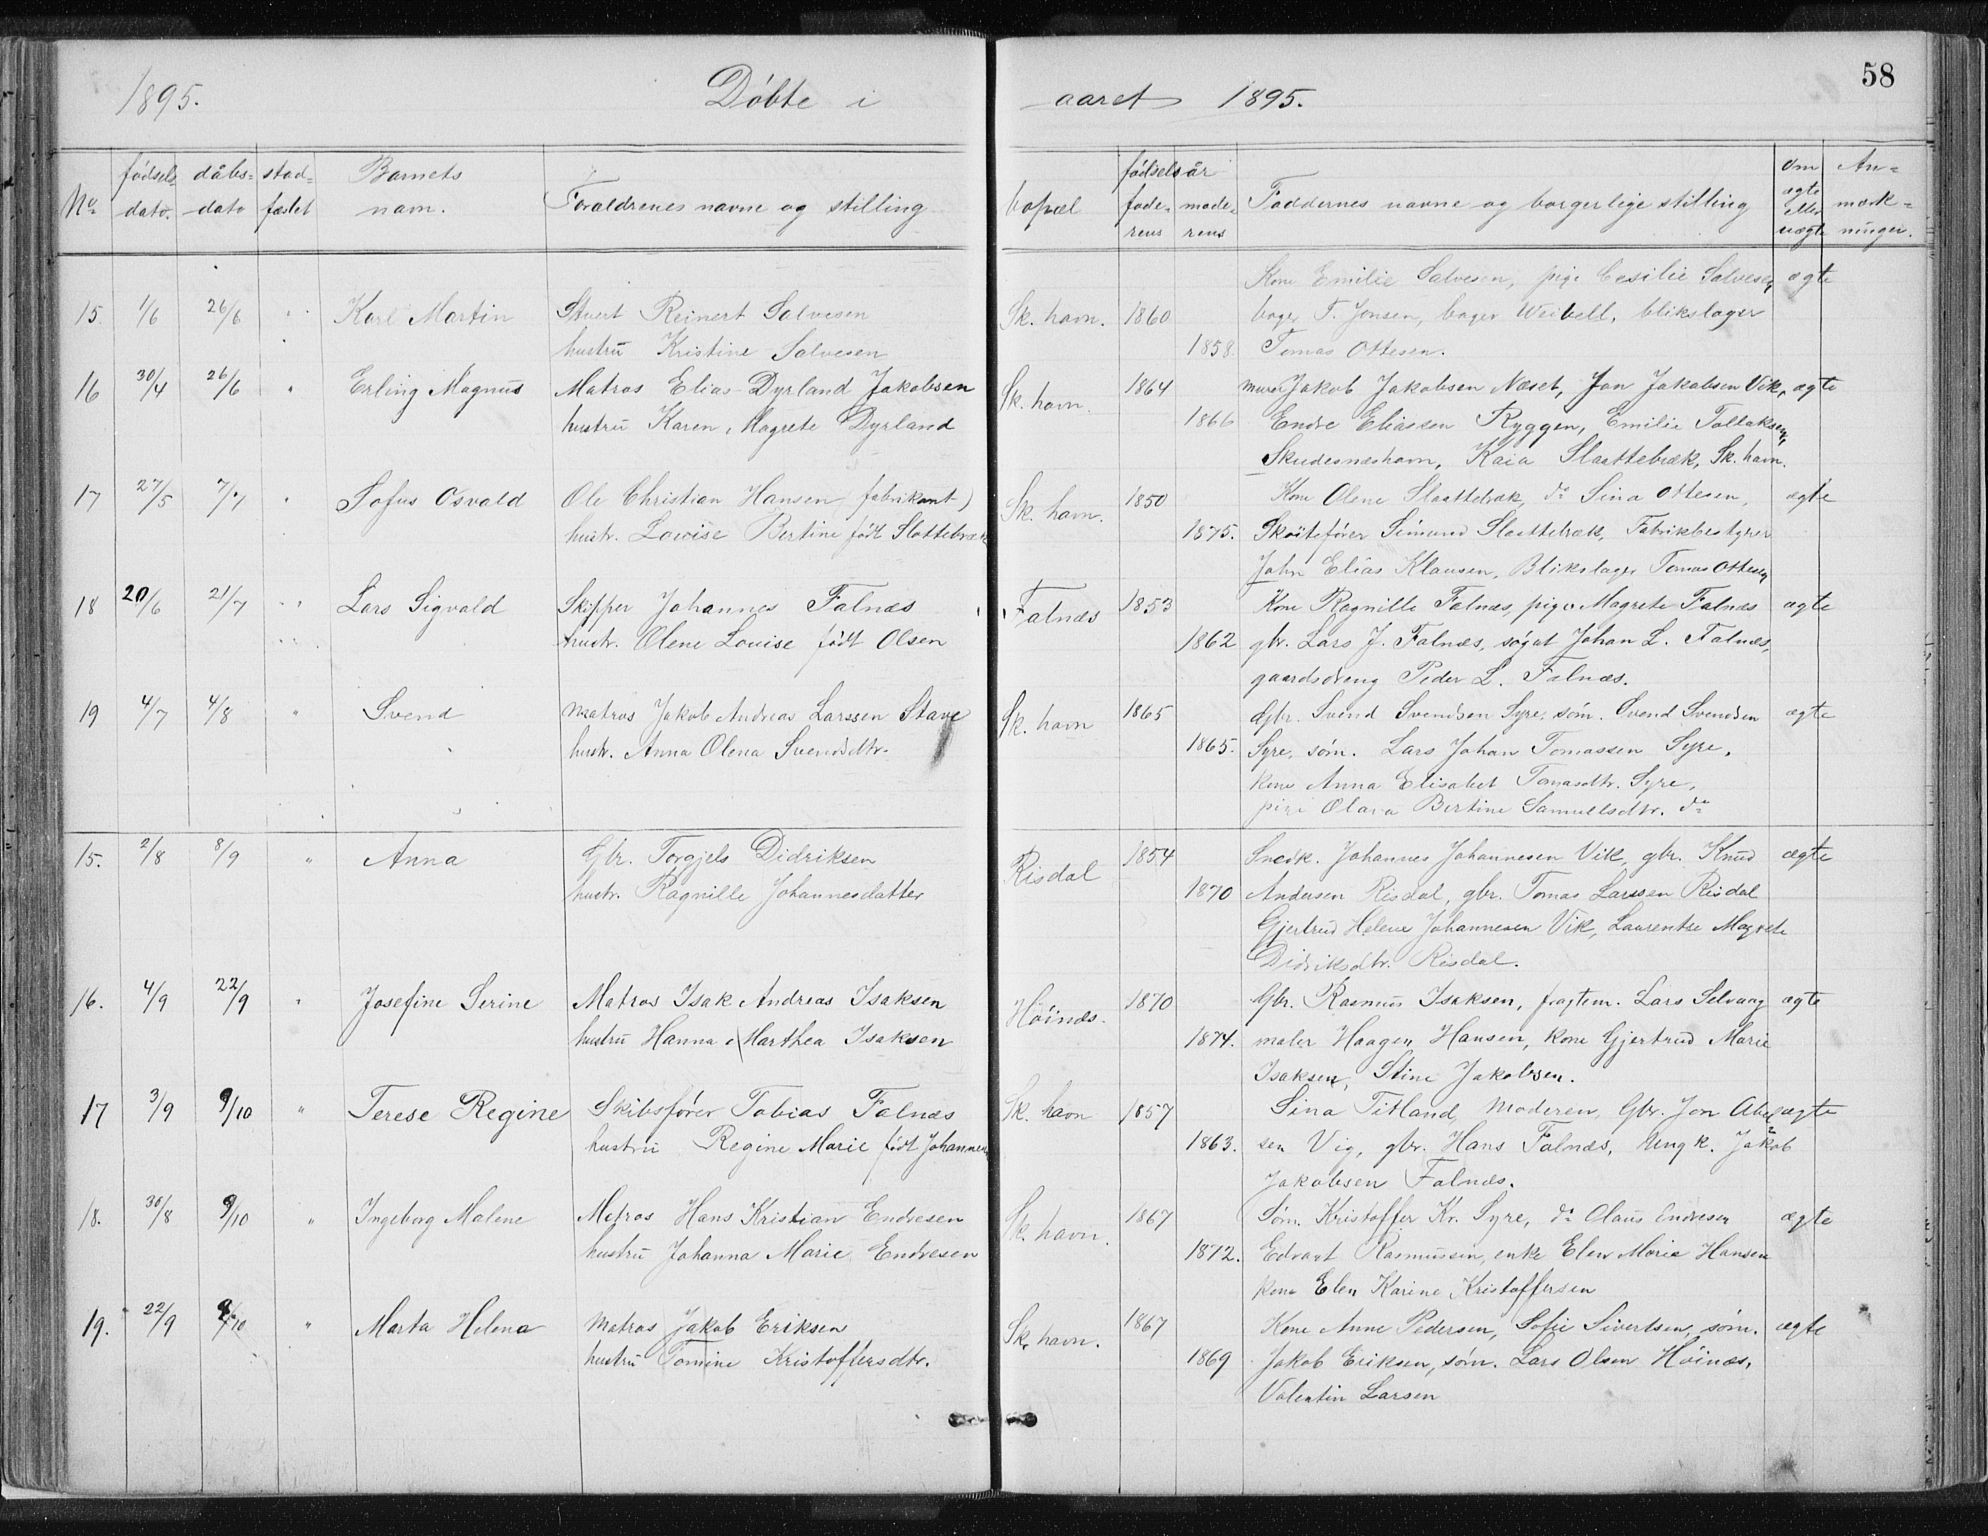 58
1895. Döbte i aaret 1895.
No. fødsels-dato. dåbs-dato stad-fæstet Barnets navn. Foraldrenes navne og stilling bopæl fødselsår fade-rens mode-rens Faddernes navne og borgerlige stilling Om ægte eller uægte An-mærk-ninger.
15. 1/6 26/6 " Karl Martin Stuert Reinert Salvesen Sk. havn. 1860 Kone Emilie Salvesen, pige Cesilie Salvesen ægte
hustru Kristine Salvesen 1858. bager F. Jonsen, bager Weibell, blikslager
Tomas Ottesen.
16 30/4 26/6 " Erling Magnus Matros Elias Dyrland Jakobsen Sk. havn. 1864 Jakob Jakobsen Næset, Jon Jakobsen Vik, ægte
hustru Karen Magrete Dyrland 1866 Endre Eliassen Ryggen, Emilie Tollaksen,
Skudesneshavn, Kaia Slaattebræk, Sk. havn.
17 27/5 7/7 " Sofus Osvald Ole Christian Hansen (fabrikant) Sk. havn. 1850 Kone Olene Slaattebræk, do Sina Ottesen, ægte
hustr. Lovise Bertine født Slottebræk 1875. Skøitefører Simund Slaattebræk, Fabrikbestyrer
John Elias Klausen, Blikslager Tomas Ottesen
18 20/6 21/7 " Lars Sigvald Skipper Johannes Falnæs Falnæs 1853 Kone Ragnille Falnæs, pige Magrete Falnæs ægte
hustr. Olene Louise født Olsen 1862 gbr. Lars J. Falnæs, søgut Johan L. Falnæs,
gaardsdreng Peder L. Falnæs.
19 4/7 4/8 " Svend Matros Jakob Andreas Larssen Stave Sk. havn 1865 Gbr. Svend Svendsen Syre, søm. Svend Svendsen ægte
hustr. Anna Olena Svendsdtr. 1865. Syre, søm. Lars Johan Tomassen Syre,
kone Anna Elisabet Tomasdtr. Syre,
pige Olava Bertine Samuelsdtr. do
15. 2/8 8/9 " Anna Gbr. Torgjels Didriksen Risdal 1854 Snedk. Johannes Johannesen Vik, gbr. Knud ægte
hustr. Ragnille Johannesdatter 1870 Andersen Risdal, gbr. Tomas Larssen Risdal
Gjertrud Helene Johannesen Vik, Laurentse Magrete
Didriksdtr. Risdal.
16. 4/9 22/9 " Josefine Serine Matros Isak Andreas Isaksen Høinæs. 1870 Gbr. Rasmus Isaksen, fragtem. Lars Selvaag ægte
hustru Hanna Marthea Isaksen 1874. maler Haagen Hansen, kone Gjertrud Marie
Isaksen, Stine Jakobsen.
17 3/9 9/10 " Terese Regine Skibsfører Tobias Falnæs Sk. havn 1857 Sina Titland, Moderen, Gbr. Jon Abel ægte
hustru Regine Marie født Johannesen 1863. sen Vig, gbr. Hans Falnæs, Ungk. Jakob
Jakobsen Falnæs.
18. 30/8 9/10 " Ingeborg Malene Matros Hans Kristian Endresen Sk. havn. 1867 Søm. Kristoffer Kr. Syre, do Olaus Endresen ægte
hustru Johanna Marie Endresen 1872. Edvart Rasmussen, enke Elen Marie Hansen
kone Elen Karine Kristoffersen
19. 22/9 /10 " Marta Helena Matros Jakob Eriksen Sk. havn. 1867 Kone Anne Pedersen, Sofie Sivertsen, søm. ægte
hustru Tomine Kristoffersdtr. 1869 Jakob Eriksen, søm. Lars Olsen Høinæs,
Valentin Larsen